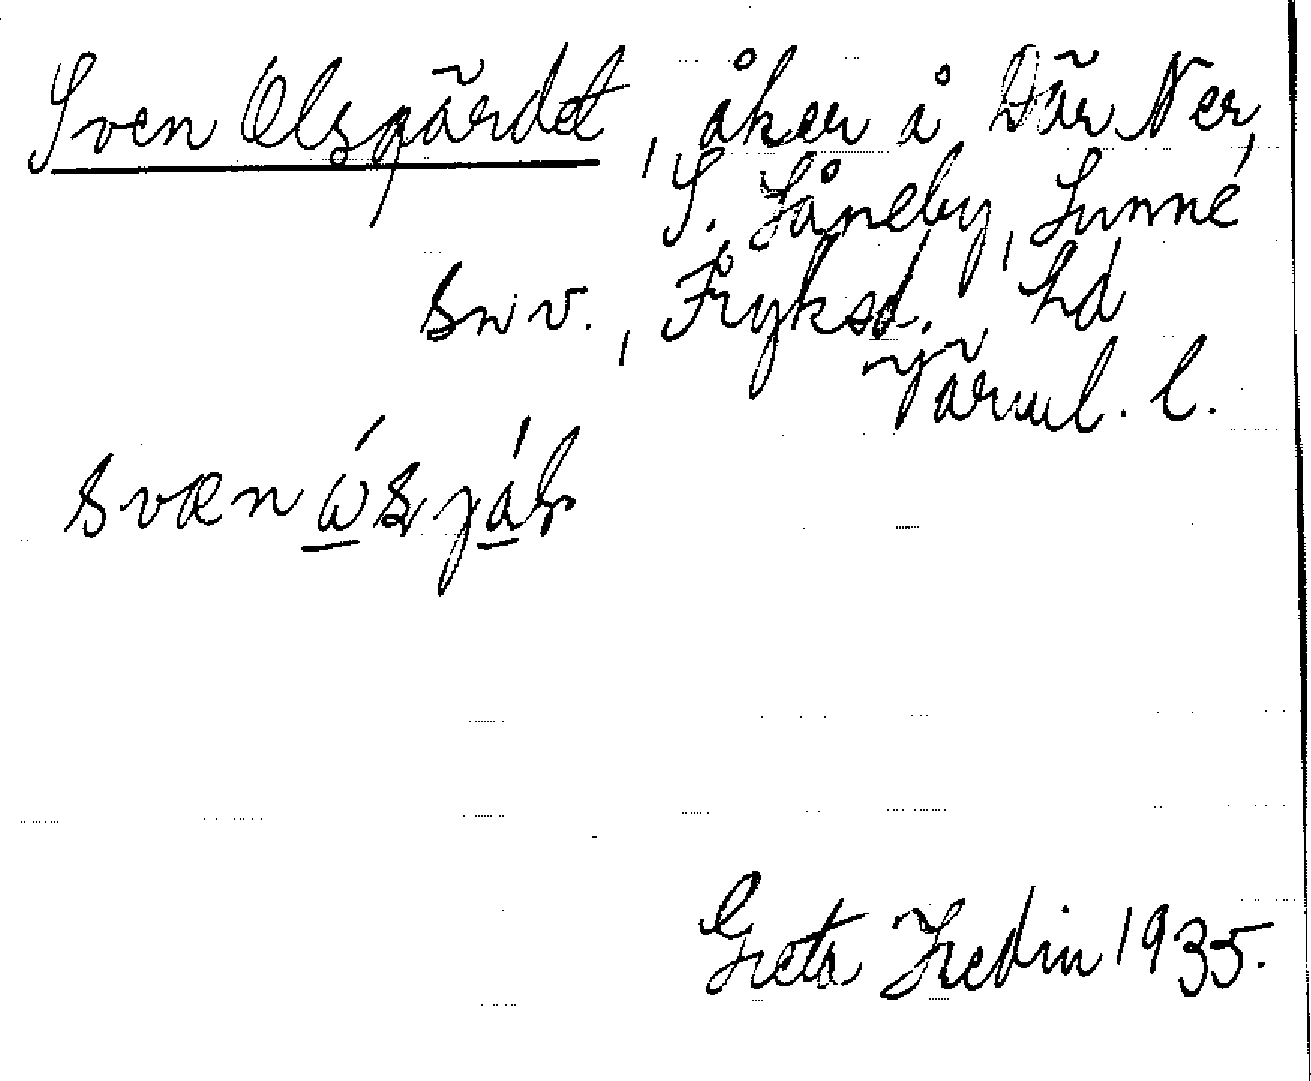 Sven Olsgärdet, åker å Där Ner,
S. Såneby, Sunne
sn v., Fryksd. hd
Värml. l.
Greta Hedin 1935.